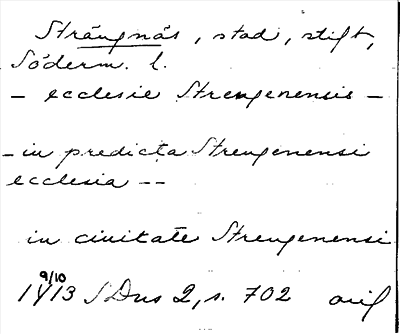 Strängnäs, stad, stift,
Söderm. l.
– ecclesie Strengenensis –
– in predicta Strengenensi
ecclesia – –
in ciuitate Strengenensi
9/10
1413 SDns 2, s. 702 orig